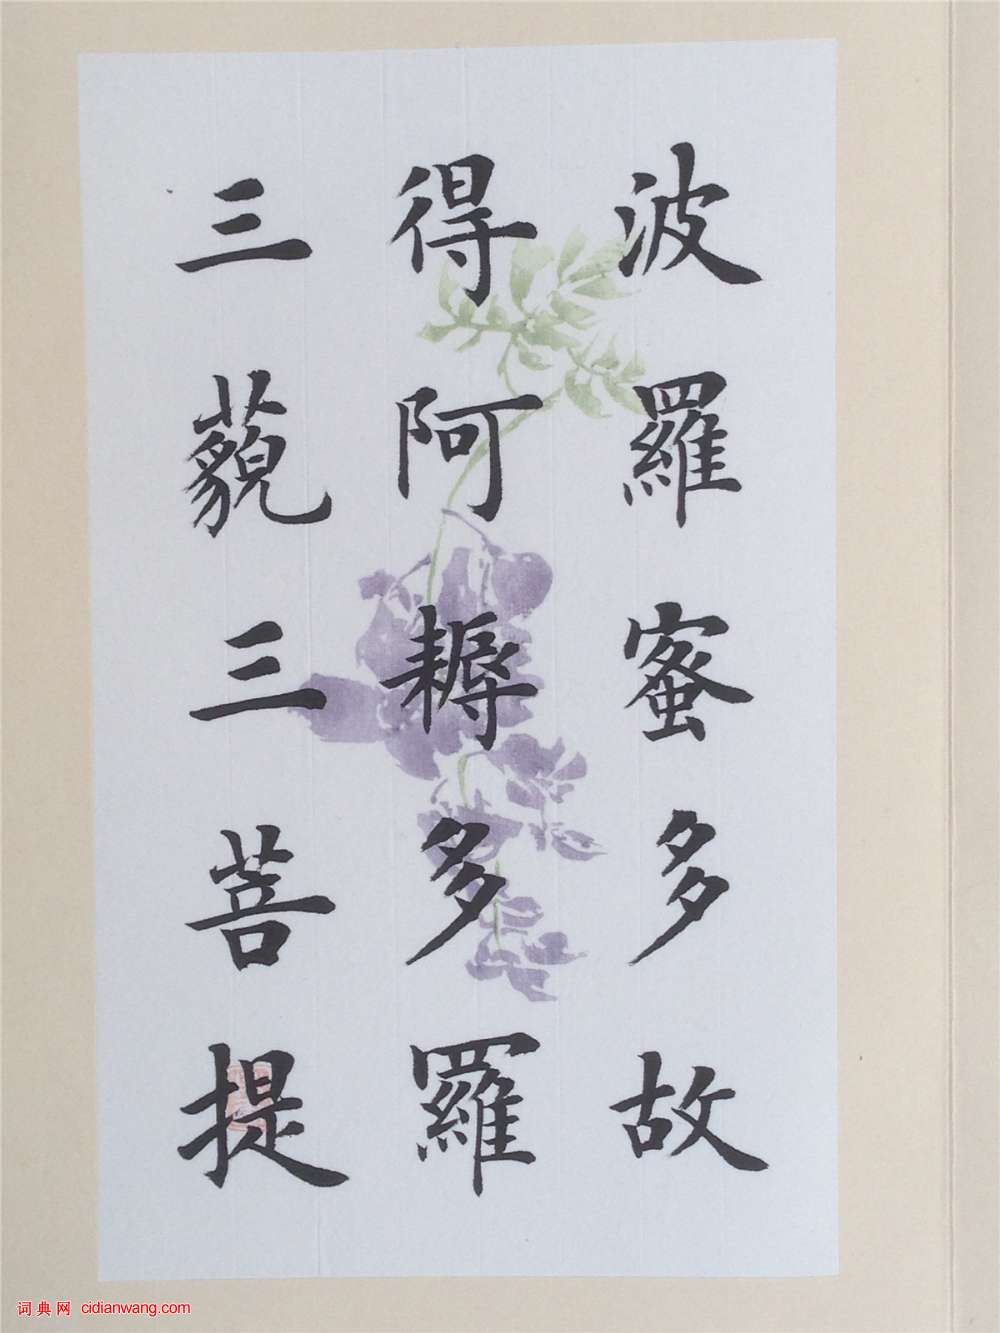 波羅蜜多故
得阿耨多羅
三藐三菩提
词典网 cidianwang.com